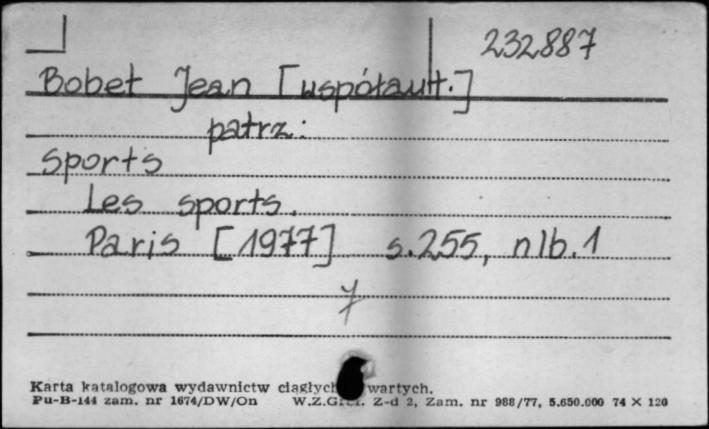 232887
Bobet Jean [współaut.]
patrz:
Sports
Les sports.
Paris [1977] s.255, nlb.1
7
Karta katalogowa wydawnictw ciągłych wartych.
Pu-B-144 zam. nr 1674/DW/On W.Z.Graf. Z-d 2, Zam. nr 988/77, 5.650.000 74 X 120